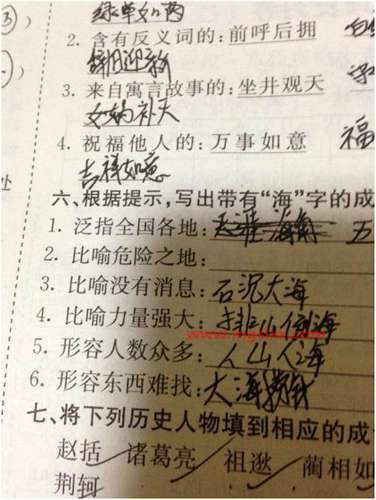 绿草如茵
2. 含有反义词的：前呼后拥
辞旧迎新
3. 来自寓言故事的：坐井观天
女娲补天
4. 祝福他人的：万事如意 福
吉祥如意
六、根据提示，写出带有“海”字的成
1. 泛指全国各地：天涯海角 五
2. 比喻危险之地：
3. 比喻没有消息：石沉大海
4. 比喻力量强大：排山倒海
5. 形容人数众多：人山人海
6. 形容东西难找：大海捞针
七、将下列历史人物填到相应的成
赵括 诸葛亮 祖逖 蔺相如
荆轲